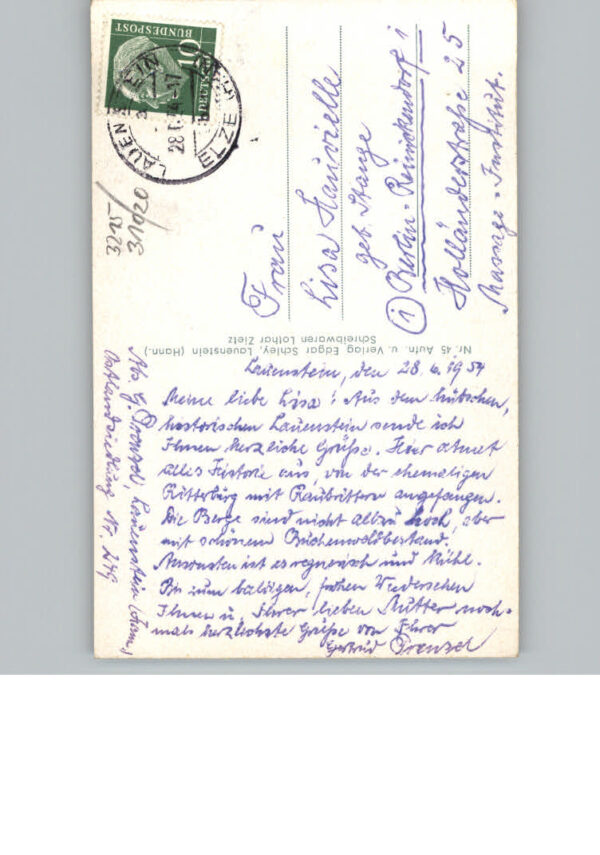 Lauenstein, den 28.6.1954
Meine liebe Lisa! Aus dem hübschen,
historischen Lauenstein sende ich
Ihnen herzliche Grüße. Hier atmet
alles Historie aus, von der ehemaligen
Ritterburg mit Raubrittern angefangen.
Die Berge sind nicht allzu hoch, aber
mit schönem Buchenwaldbestand.
Ansonsten ist es regnerisch und kühl.
Bis zum baldigen, frohen Wiedersehen
Ihnen u. Ihrer lieben Mutter noch-
mals herzlichste Grüße von Ihrer
Gertrud
Abs. G. Lauenstein (Hann.)
Nr. 249
Nr. 45 Aufn. u. Verlag Edgar Schley, Lauenstein (Hann.)
Schreibwaren Lothar Zietz
Frau
Lisa
geb. Stange
(1) Berlin-Reinickendorf 1
Holländerstraße 25
Massage-Institut.
DEUTSCHE
BUNDESPOST
10
ELZE
31020